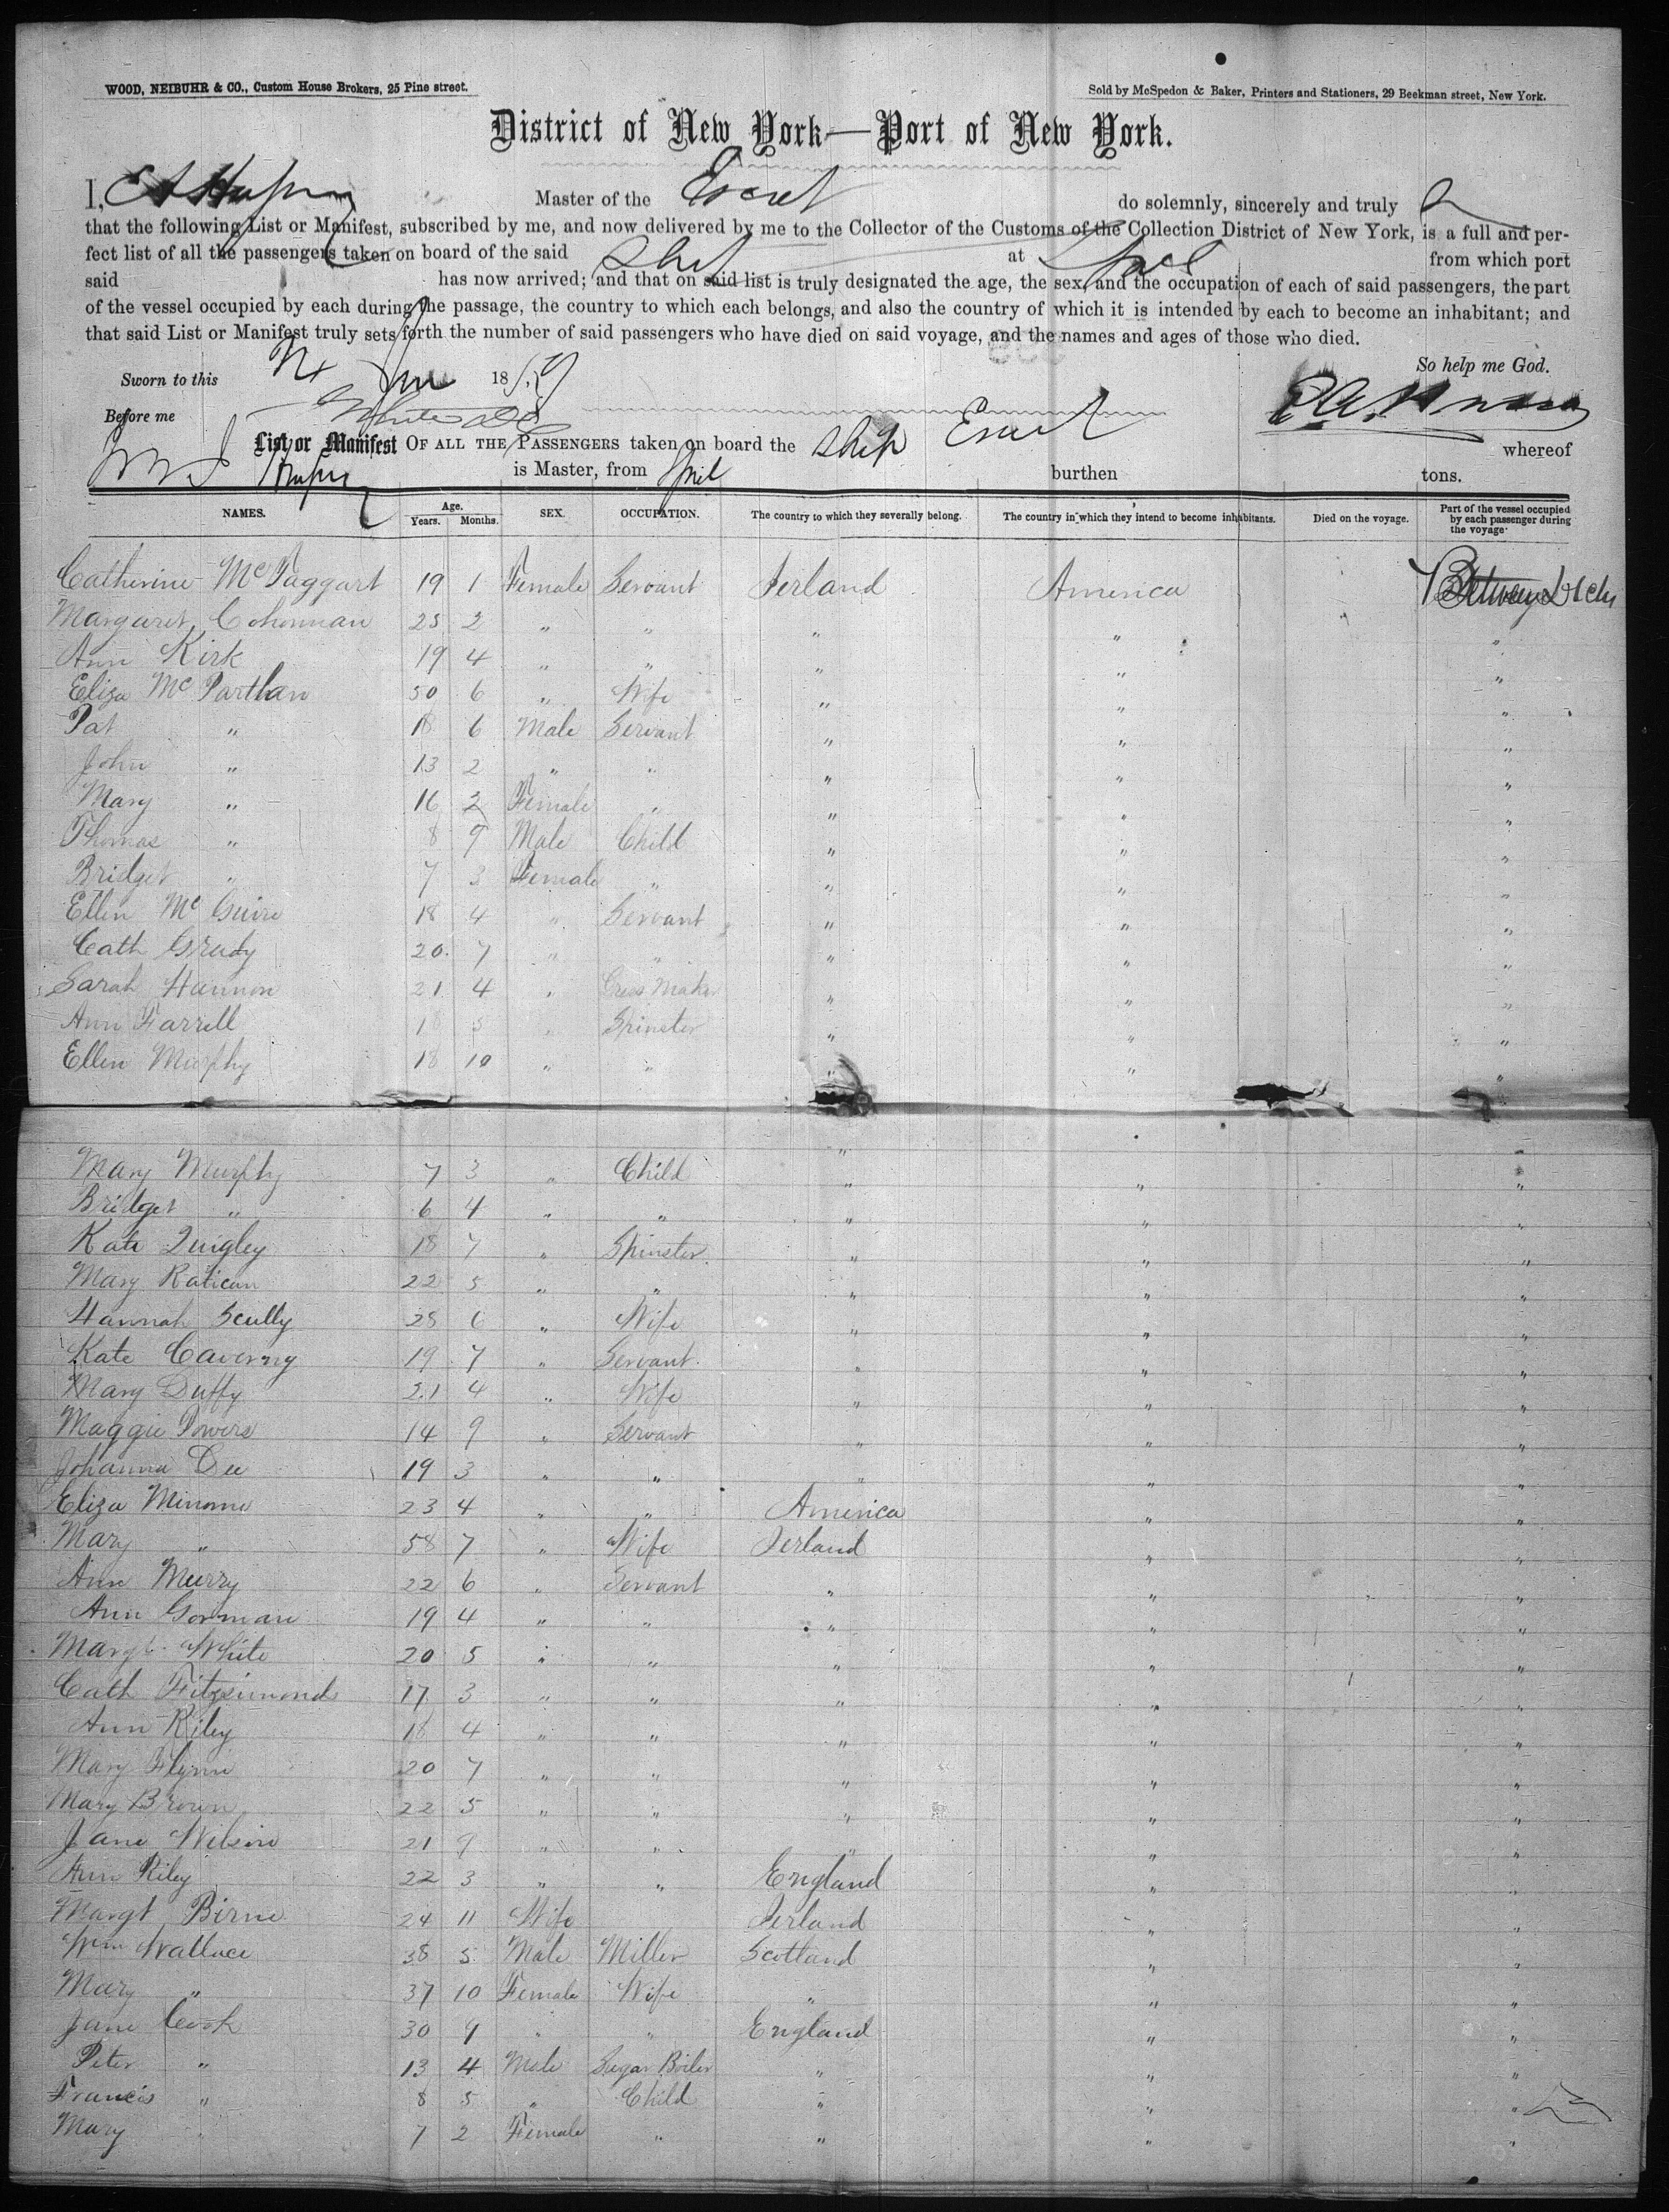 WOOD, NEIBUHR & CO., Custom House Brokers, 25 Pine street.
Sold by McSpedon & Baker, Printers and Stationers, 29 Beekman street, New York.
District of New York—Port of New York.
I, Master of the do solemnly, sincerely and truly
that the following List or Manifest, subscribed by me, and now delivered by me to the Collector of the Customs of the Collection District of New York, is a full and per-
fect list of all the passengers taken on board of the said Ship at from which port
said has now arrived; and that on said list is truly designated the age, the sex, and the occupation of each of said passengers, the part
of the vessel occupied by each during the passage, the country to which each belongs, and also the country of which it is intended by each to become an inhabitant; and
that said List or Manifest truly sets forth the number of said passengers who have died on said voyage, and the names and ages of those who died.
So help me God.
Sworn to this 1859
Before me
List or Manifest OF ALL THE PASSENGERS taken on board the Ship whereof
is Master, from burthen tons.
NAMES. Age. Years. Months. SEX. OCCUPATION. The country to which they severally belong. The country in which they intend to become inhabitants. Died on the voyage. Part of the vessel occupied by each passenger during the voyage
Catherine McTaggart 19 1 Female Servant Ierland America
Margaret 2 " " " " "
Ann Kirk 19 4 " " " " "
Eliza Mc Parthan 50 6 " Wife " " "
Pat " 18 6 Male Servant " " "
John " 13 2 " " " " "
Mary " 16 2 Female " " " "
Thomas " 8 9 Male Child " " "
Bridget " 7 3 Female " " " "
Ellen Mc Guire 18 4 " Servant " " "
Cath Grady 20 7 " " " " "
Sarah Hannon 21 4 " Maker " " "
Ann Farrell 18 5 " Spinster " " "
Ellen Murphy 18 10 " " " " "
Mary Murphy 7 3 " Child " " "
Bridget " 6 4 " " " " "
Kate Quigley 18 7 " Spinster " " "
Mary Ratican 22 5 " " " " "
Hannah Scully 28 6 " Wife " " "
Kate 19 7 " Servant " " "
Mary Duffy 21 4 " Wife " " "
Maggie Powers 14 9 " Servant " " "
Johanna Dee 19 3 " " " " "
Eliza 23 4 " " America " "
Mary " 58 7 " Wife Ierland " "
Ann Murry 22 6 " Servant " " "
Ann Gorman 19 4 " " " " "
Margt White 20 5 " " " " "
Cath Fitzsimonds 17 3 " " " " "
Ann Riley 18 4 " " " " "
Mary Flynn 20 7 " " " " "
Mary Brown 22 5 " " " " "
Jane Wilson 21 9 " " " " "
Ann Riley 22 3 " " England " "
Margt Birne 24 11 Wife Ierland " "
Wm Wallace 38 5 Male Miller Scotland " "
Mary " 37 10 Female Wife " " "
Jane Cook 30 9 " " England " "
Peter " 13 4 Male Sugar Boiler " " "
Francis " 8 5 " Child " " "
Mary " 7 2 Female " " " "